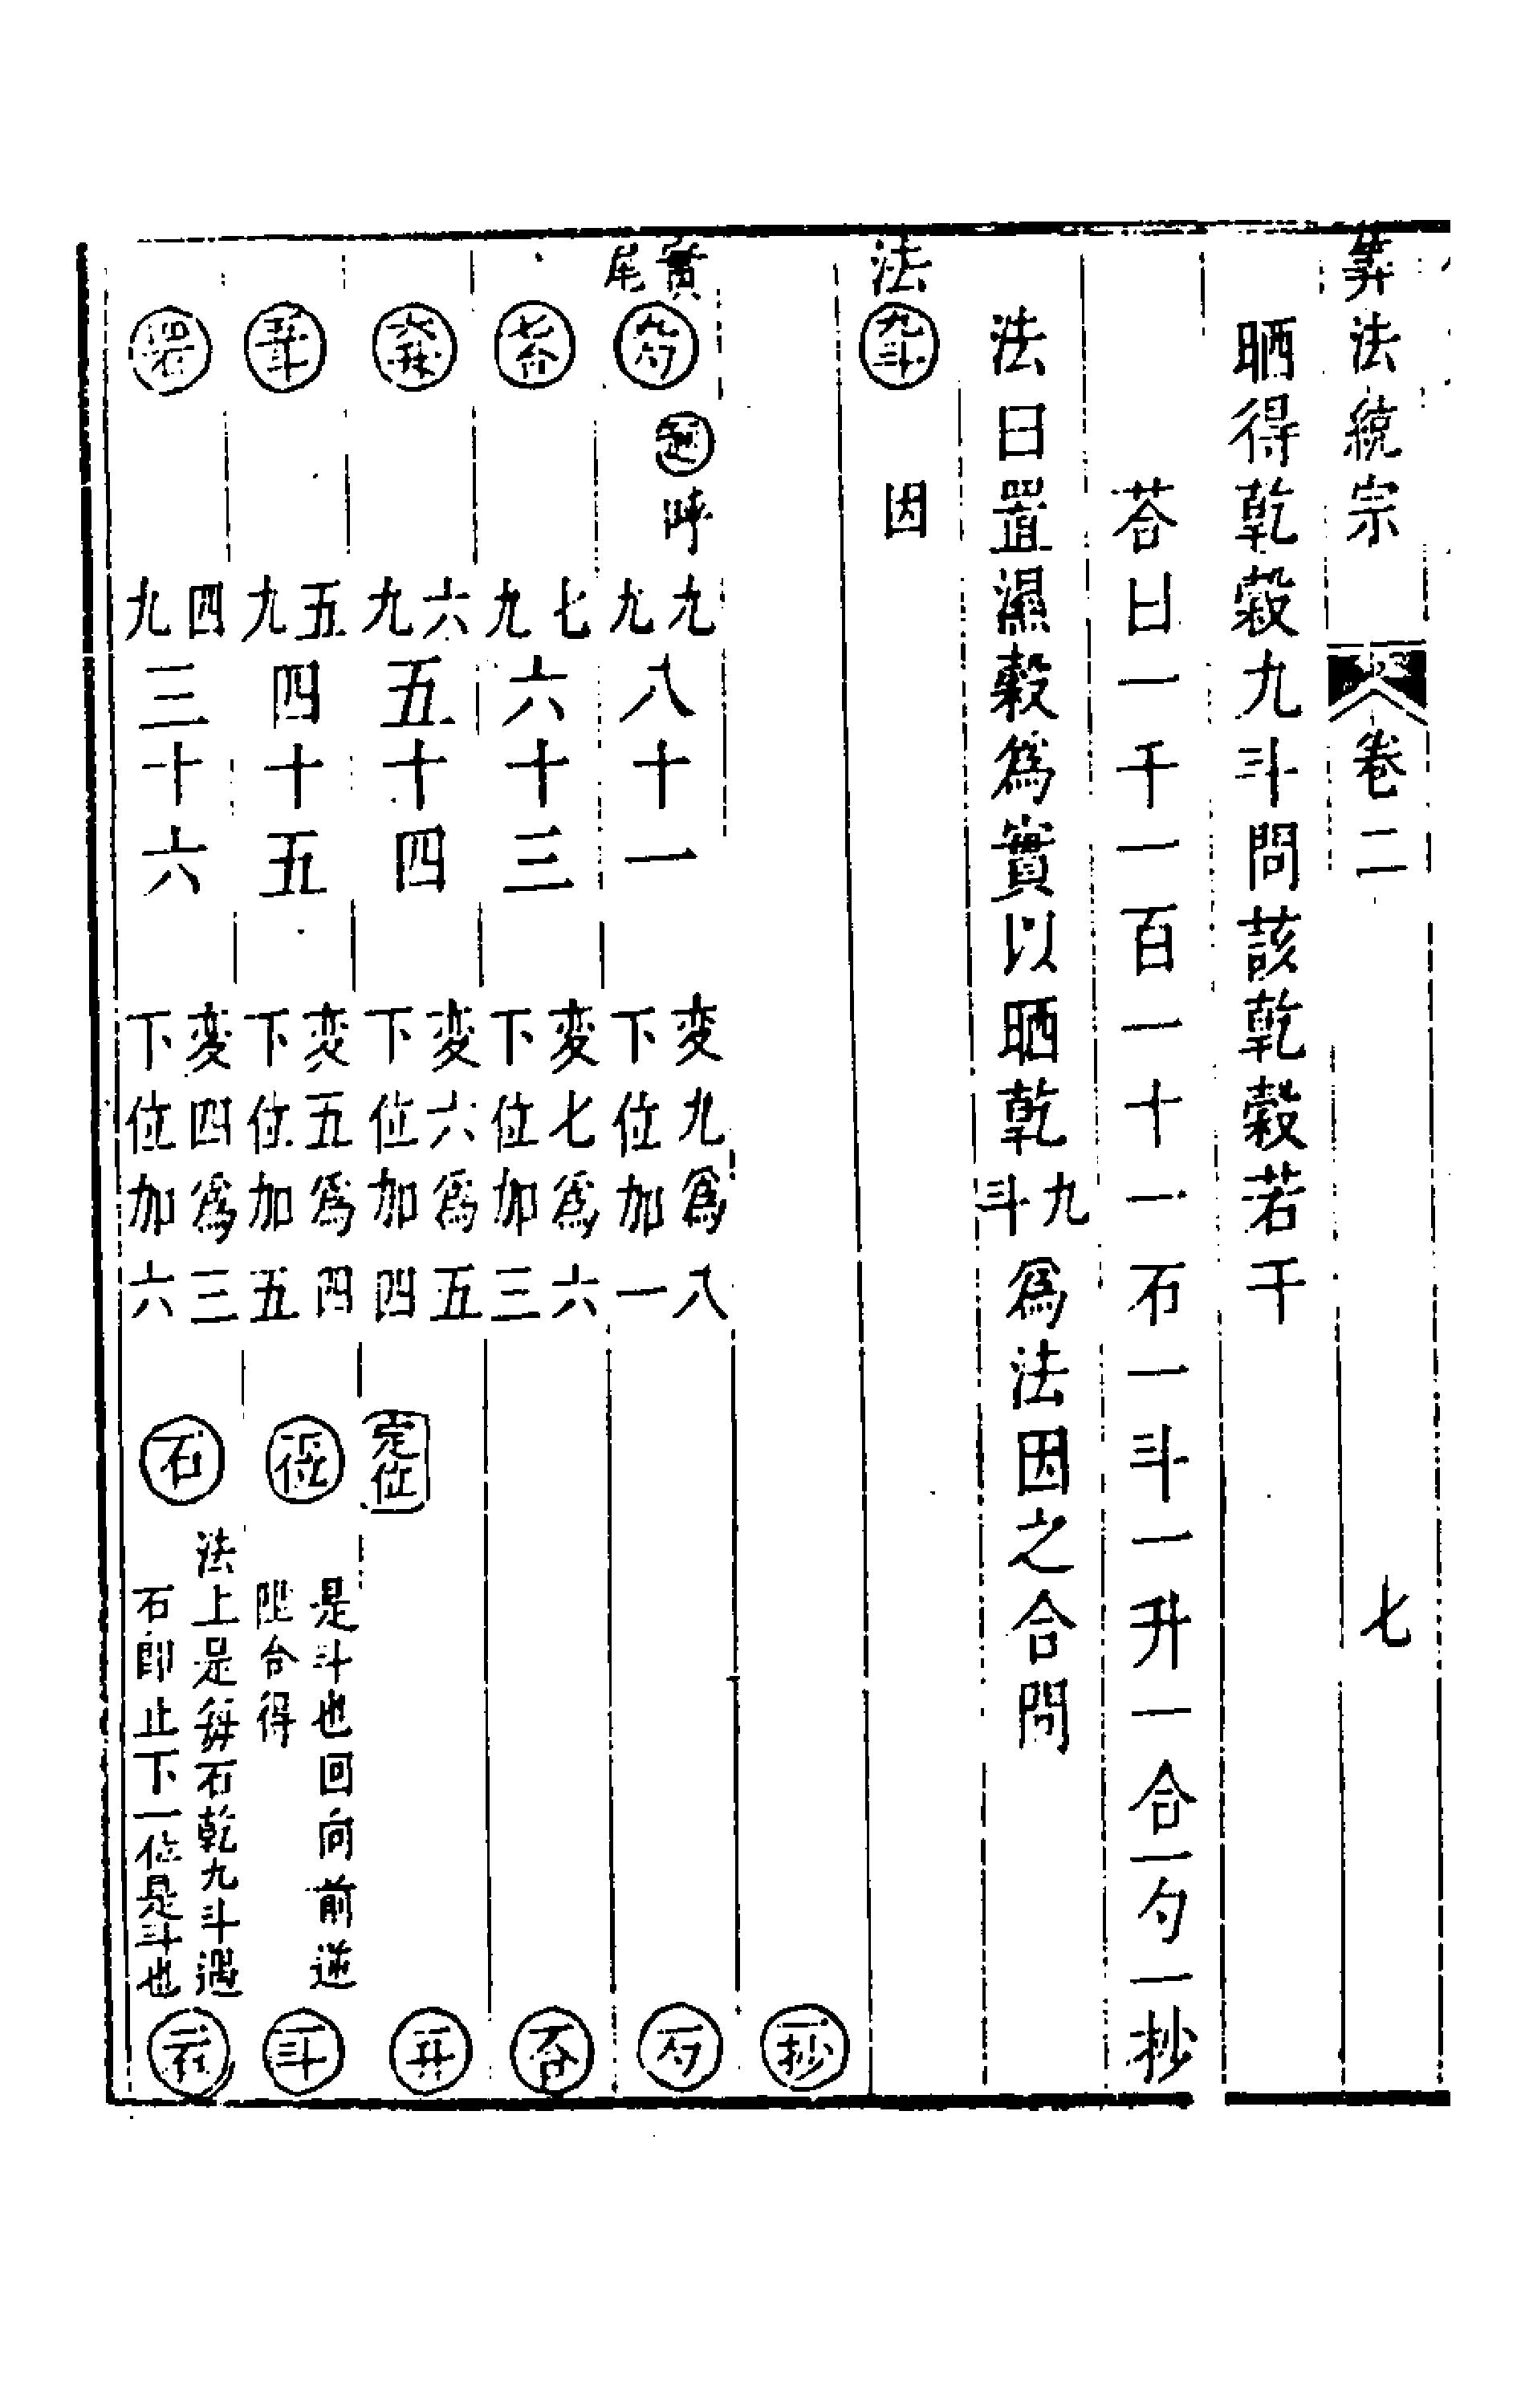 算法統宗 卷二 七
晒得乾穀九斗問該乾穀若干
荅曰一千一百一十一石一斗一升一合一勺一抄
法曰置濕穀爲實以晒乾九斗爲法因之合問
法 九斗 因
實尾 九勺 起 呼 九九八十一 変九爲八下位加一
一抄
七合 七九六十三 変七爲六下位加三 一勺
六升 六九五十四 変六爲五下位加四 定位 一合
五斗 五九四十五 変五爲四下位加五 位 是斗也回向前逆陞合得 一升
四石 四九三十六 変四爲三下位加六 石 法上是每石乾九斗遇石即止下一位是斗也 一斗
一石